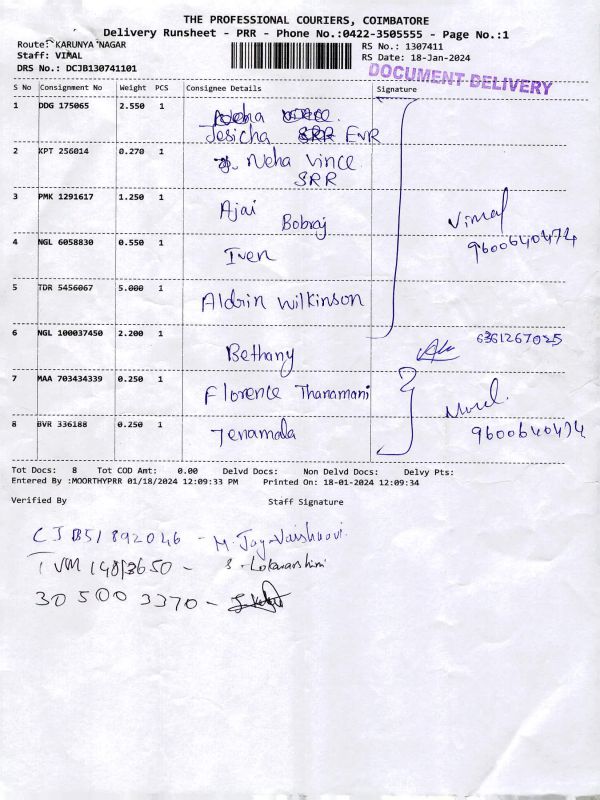 THE PROFESSIONAL COURIERS, COIMBATORE
Delivery Runsheet - PRR - Phone No.:0422-3505555 - Page No.:1
Route: KARUNYA NAGAR RS No.: 1307411
Staff: VIMAL RS Date: 18-Jan-2024
DRS No.: DCJB130741101
DOCUMENT DELIVERY
S No Consignment No Weight PCS Consignee Details Signature
1 DDG 175065 2.550 1
Jesicha EVR
2 KPT 256014 0.270 1 Neha Vince
SRR
3 PMK 1291617 1.250 1 Ajai
Bobraj
Vimal
9600640474
4 NGL 6058830 0.550 1 Iven
5 TDR 5456067 5.000 1 Aldrin Wilkinson
6 NGL 100037450 2.200 1 Bethany 6361267025
7 MAA 703434339 0.250 1 Florence Thanamani
8 BVR 336188 0.250 1 Jenamala 9600640474
Tot Docs: 8 Tot COD Amt: 0.00 Delvd Docs: Non Delvd Docs: Delvy Pts:
Entered By :MOORTHYPRR 01/18/2024 12:09:33 PM Printed On: 18-01-2024 12:09:34
Verified By Staff Signature
CJB51892046 - M. Jay
TVM 148 3650 -
30 500 3370 -